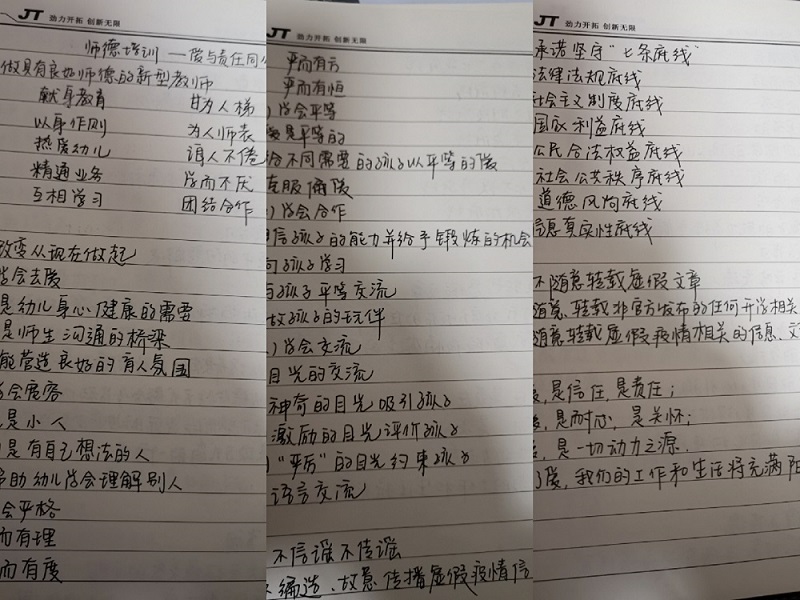 JT 劲力开拓 创新无限
师德培训 — 爱与责任同
做具有良好师德的新型教师
献身教育 甘为人梯
以身作则 为人师表
热爱幼儿 诲人不倦
精通业务 学而不厌
互相学习 团结合作
改变从现在做起
学会去爱
是幼儿身心健康的需要
是师生沟通的桥梁
能营造良好的育人氛围
学会宽容
是小人
是有自己想法的人
帮助幼儿学会理解别人
会严格
而有理
而有度
JT 劲力开拓 创新无限
严而有方
严而有恒
)学会平等
爱是平等的
给不同需要的孩子以平等的爱
克服偏爱
)学会合作
相信孩子的能力并给予锻炼的机会
向孩子学习
与孩子平等交流
做孩子的玩伴
)学会交流
目光的交流
神奇的目光吸引孩子
激励的目光评价孩子
"严厉"的目光约束孩子
语言交流
不信谣不传谣
编造、故意传播虚假疫情信
JT 劲力开拓 创新无限
承诺坚守"七条底线"
法律法规底线
社会主义制度底线
国家利益底线
公民合法权益底线
社会公共秩序底线
道德风尚底线
信息真实性底线
不随意转载虚假文章
随意转载非官方发布的任何开学相关
随意转载虚假疫情相关的信息、文
,是信任,是责任;
,是耐心,是关怀;
,是一切动力之源.
爱,我们的工作和生活将充满阳